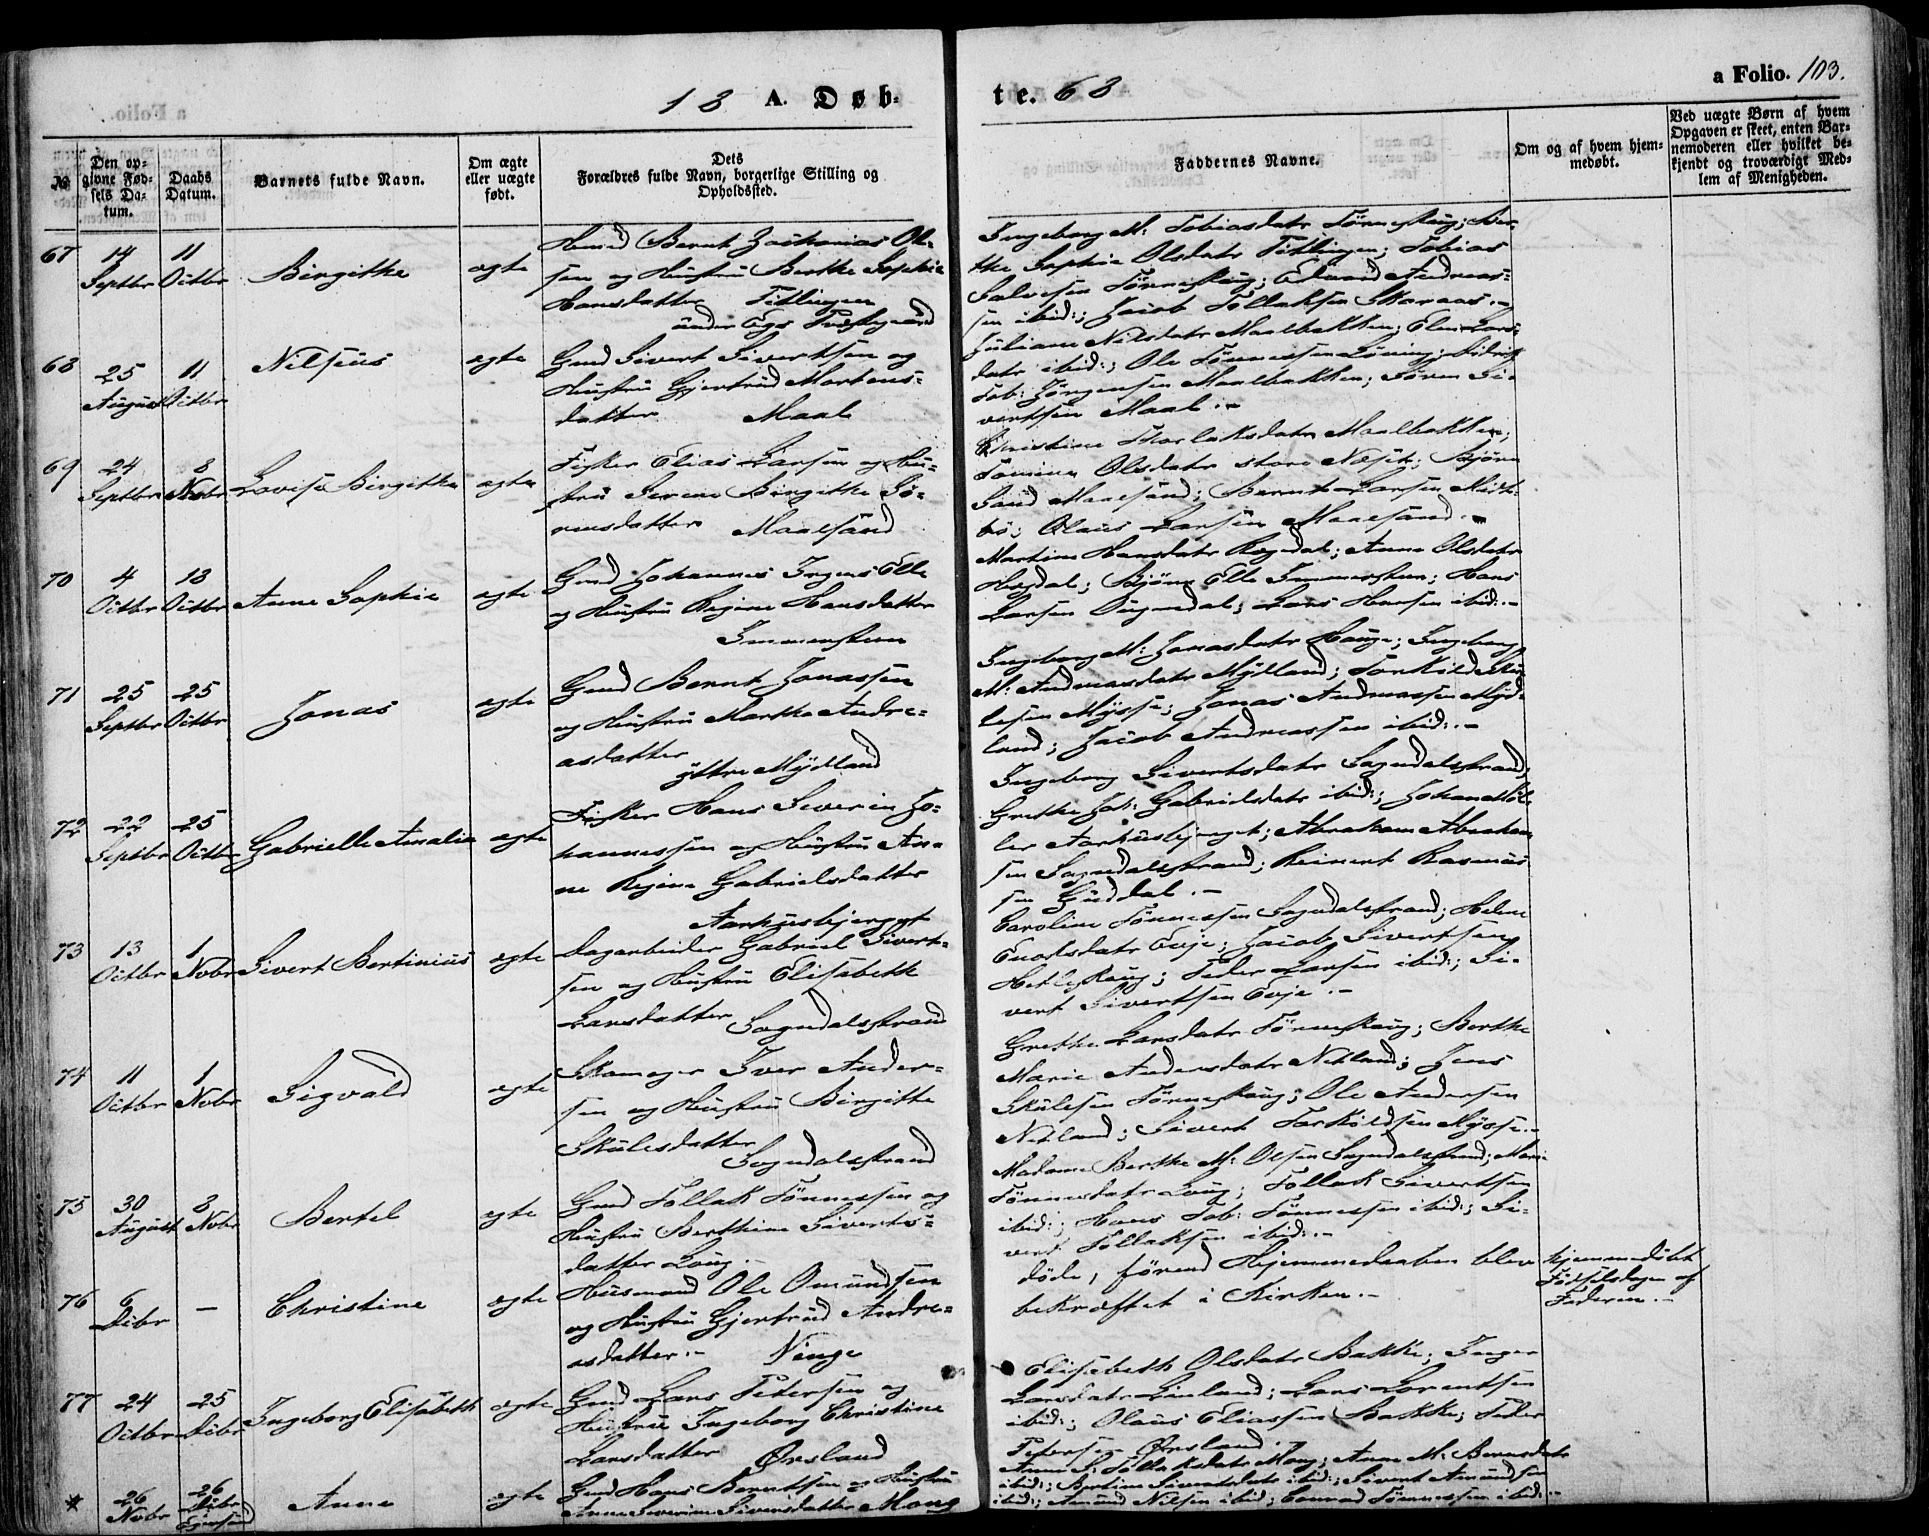 18 A. Døb-
te. 68
a Folio. 103.
№
Den op-
givne Fød-
sels Da-
tum.
Daabs
Datum.
Barnets fulde Navn.
Om ægte
eller uægte
født.
Dets
Forældres fulde Navn, borgerlige Stilling og
Opholdssted.
Faddernes Navne.
Om og af hvem hjem-
medøbt.
Ved uægte Børn af hvem
Opgaven er skeet, enten Bar-
nemoderen eller hvilket be-
kjendt og troværdigt Med-
lem af Menigheden.
67
14
Septbr
11
Octbr
Birgithe
ægte
Bernt Zakarias Ol-
sen og Hustru Berthe Sophie
Hansdatter Titlingen
under Egs Præstegaard
Ingeborg M: Tobiasdatr Tønneskaug; Ber-
the Sophie Olsdatr Titlingen; Tobias
Salvesen Tønneskaug; Edvard Andreas-
sen ibid:; Jacob Tollaksen Skaraas.-
68
25
August
11
Octbr
Nilseus
ægte
Gmd Sivert Sivertsen og
Hustru Gjertrud Martens-
datter Maal
Juliane Nilsdatr Maalbakken; Elen Lars-
datr ibid:; Ole Tønnessen Løving;
Tob: Jørgensen Maalbakken; Søren Si-
vertsen Maal.-
69
24
Septbr
8
Novbr
Lovise Birgithe
ægte
Fisker Elias Larsen og Hu-
stru Serene Birgithe Sø-
rensdatter Maalsund
Christine Thorlaksdatr Maalbakken;
Tomine Olsdatr store Næset; Bjørn
Sand Maalsund; Bernt Larsen Midt-
bø; Olaus Larsen Maalsund.-
70
4
Octbr
18
Octbr
Anne Sophie
ægte
Gmd Johannes Ingens Elle
og Hustru Regine Hansdatter
Immerstein
Martine Hansdatr Rægdal; Anne Olsdatr
Hægdal; Bjørn Elle Immerstein; Hans
Larsen Øigrædal; Lars Hansen ibid:.-
71
25
Septbr
25
Octbr
Jonas
ægte
Gmd Bernt Jonassen
og Hustru Marthe Andre-
asdatter
yttre Mydland
Ingeborg M: Jonasdatr Hauge; Ingeborg
M: Andreasdatr Mydland; Torkild Sku-
lesen Mysse; Jonas Andreassen Myd-
land; Jacob Andreassen ibid:.-
72
22
Septbr
25
Octbr
Gabrielle Amalie
ægte
Fisker Hans Severin Jo-
hannessen og Hustru An-
ne Regine Gabrielsdatter
Aarhusbjerget
Ingeborg Sivertsdatr Sogndalstrand;
Grethe Joh: Gabrielsdatr ibid:; Johan Møl-
ler Aarhusbjerget; Abraham Abraham-
sen Sogndalstrand; Reinert Rasmus-
sen Guddal.-
73
13
Octbr
1
Novbr
Sivert Bertinius
ægte
Dagarbeider Gabriel Sivert-
sen og Hustru Elisabeth
Larsdatter Sogndalstrand
Caroline Tønnessen Sogndalstrand; Helene
Enoksdatr Evje; Jacob Sivertsen
Hetleskaug; Peder Larsen ibid:; Si-
vert Sivertsen Evje.-
74
11
Octbr
1
Novbr
Sigvald
ægte
Skomager Iver Ander-
sen og Hustru Birgitte
Skulesdatter
Sogndalstrand
Grethe Larsdatr Tønneskaug; Berthe
Marie Andersdatr Netland; Jens
Skulesen Tønneskaug; Ole Andersen
Netland; Sivert Torkildsen Mysse.-
75
30
August
8
Novbr
Bertel
ægte
Gmd Tollak Tønnessen og
Hustru Berthine Siverts-
datter Loug.-
Madame Berthe M: Olsen Sogndalstrand; Marie
Tønnesdatr Loug; Tollak Sivertsen
ibid:; Hans Tob: Tønnessen ibid:; Si-
vert Tollaksen ibid:.-
76
6
Decbr
-
Christine
ægte
Husmand Ole Omundsen
og Hustru Gjertrud Andre-
asdatter.- Vinge
døde, førend Hjemmedaaben blev
bekræftet i Kirken.-
hjemmedøbt
Fødselsdagen af
Faderen.-
77
24
Octbr
25
Decbr
Ingeborg Elisabeth
ægte
Gmd Hans Petersen og
Hustru Ingeborg Christine
Larsdatter Ørsland
Elisabeth Olsdatr Bakke; Inger
Larsdatr Linland; Lars Lorentsen
ibid:; Olaus Eliassen Bakke; Peder
Petersen Ørsland.-
*
26
Novbr
26
Decbr
Anne
ægte
Gmd Hans Berntsen og Hustru
Anne Severine Siversdatter Mong
Anne S: Tollaksdatr Mong; Anne M: Berntsdatr
ibid:; Bertine Sivertsdatr ibid:; Sivert Amundsen
ibid:; Amund Nilsen ibid; Conrad Tønnessen ibid:.-